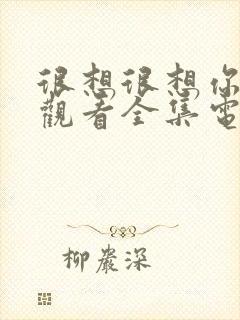 很想很想你
觀看全集電
柳巖深